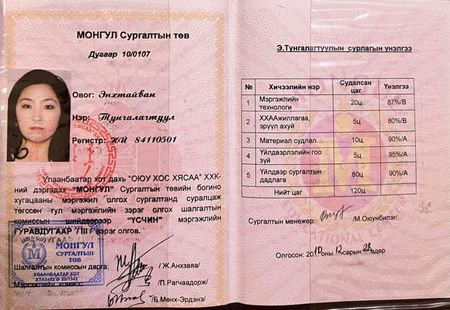 МОНГУЛ Сургалтын төв
Дугаар 10/0107
Овог: Энхтайван
Нэр: Тунгалагтуул
Регистр: ЖЙ 84110501
Улаанбаатар хот дахь "ОЮУ ХОС ХЯСАА" ХХК-
ний дэргэдэх "МОНГУЛ" Сургалтын төвийн богино
хугацааны мэргэжил олгох сургалтанд суралцаж
төгссөн тул мэргэжлийн зэрэг олгох шалгалтын
комиссын шийдвэрээр "ҮСЧИН" мэргэжлийн
ГУРАВДУГААР /III/ зэрэг олгов.
МОНГУЛ
СУРГАЛТЫН
ТӨВ
УЛААНБААТАР ХОТ
Шалгалтын комиссын дарга: /Ж.Анхзаяа/
/П.Рагчаадорж/
/Б.Мөнх-Эрдэнэ/
Э.Тунгалагтуулын сурлагын үнэлгээ
№ Хичээлийн нэр Судалсан цаг Үнэлгээ
1 Мэргэжлийн технологи 20ц 87%/B
2 ХХААжиллагаа, эрүүл ахуй 5ц 80%/B
3 Материал судлал 10ц 90%/A
4 Үйлдвэрлэлийн гоо зүй 5ц 95%/A
5 Үйлдвэр сургалтын дадлага 80ц 90%/A
Нийт цаг 120ц
Сургалтын менежер: /М.Оюунбилэг/
Олгосон: 2010 оны 12 сарын 28 өдөр